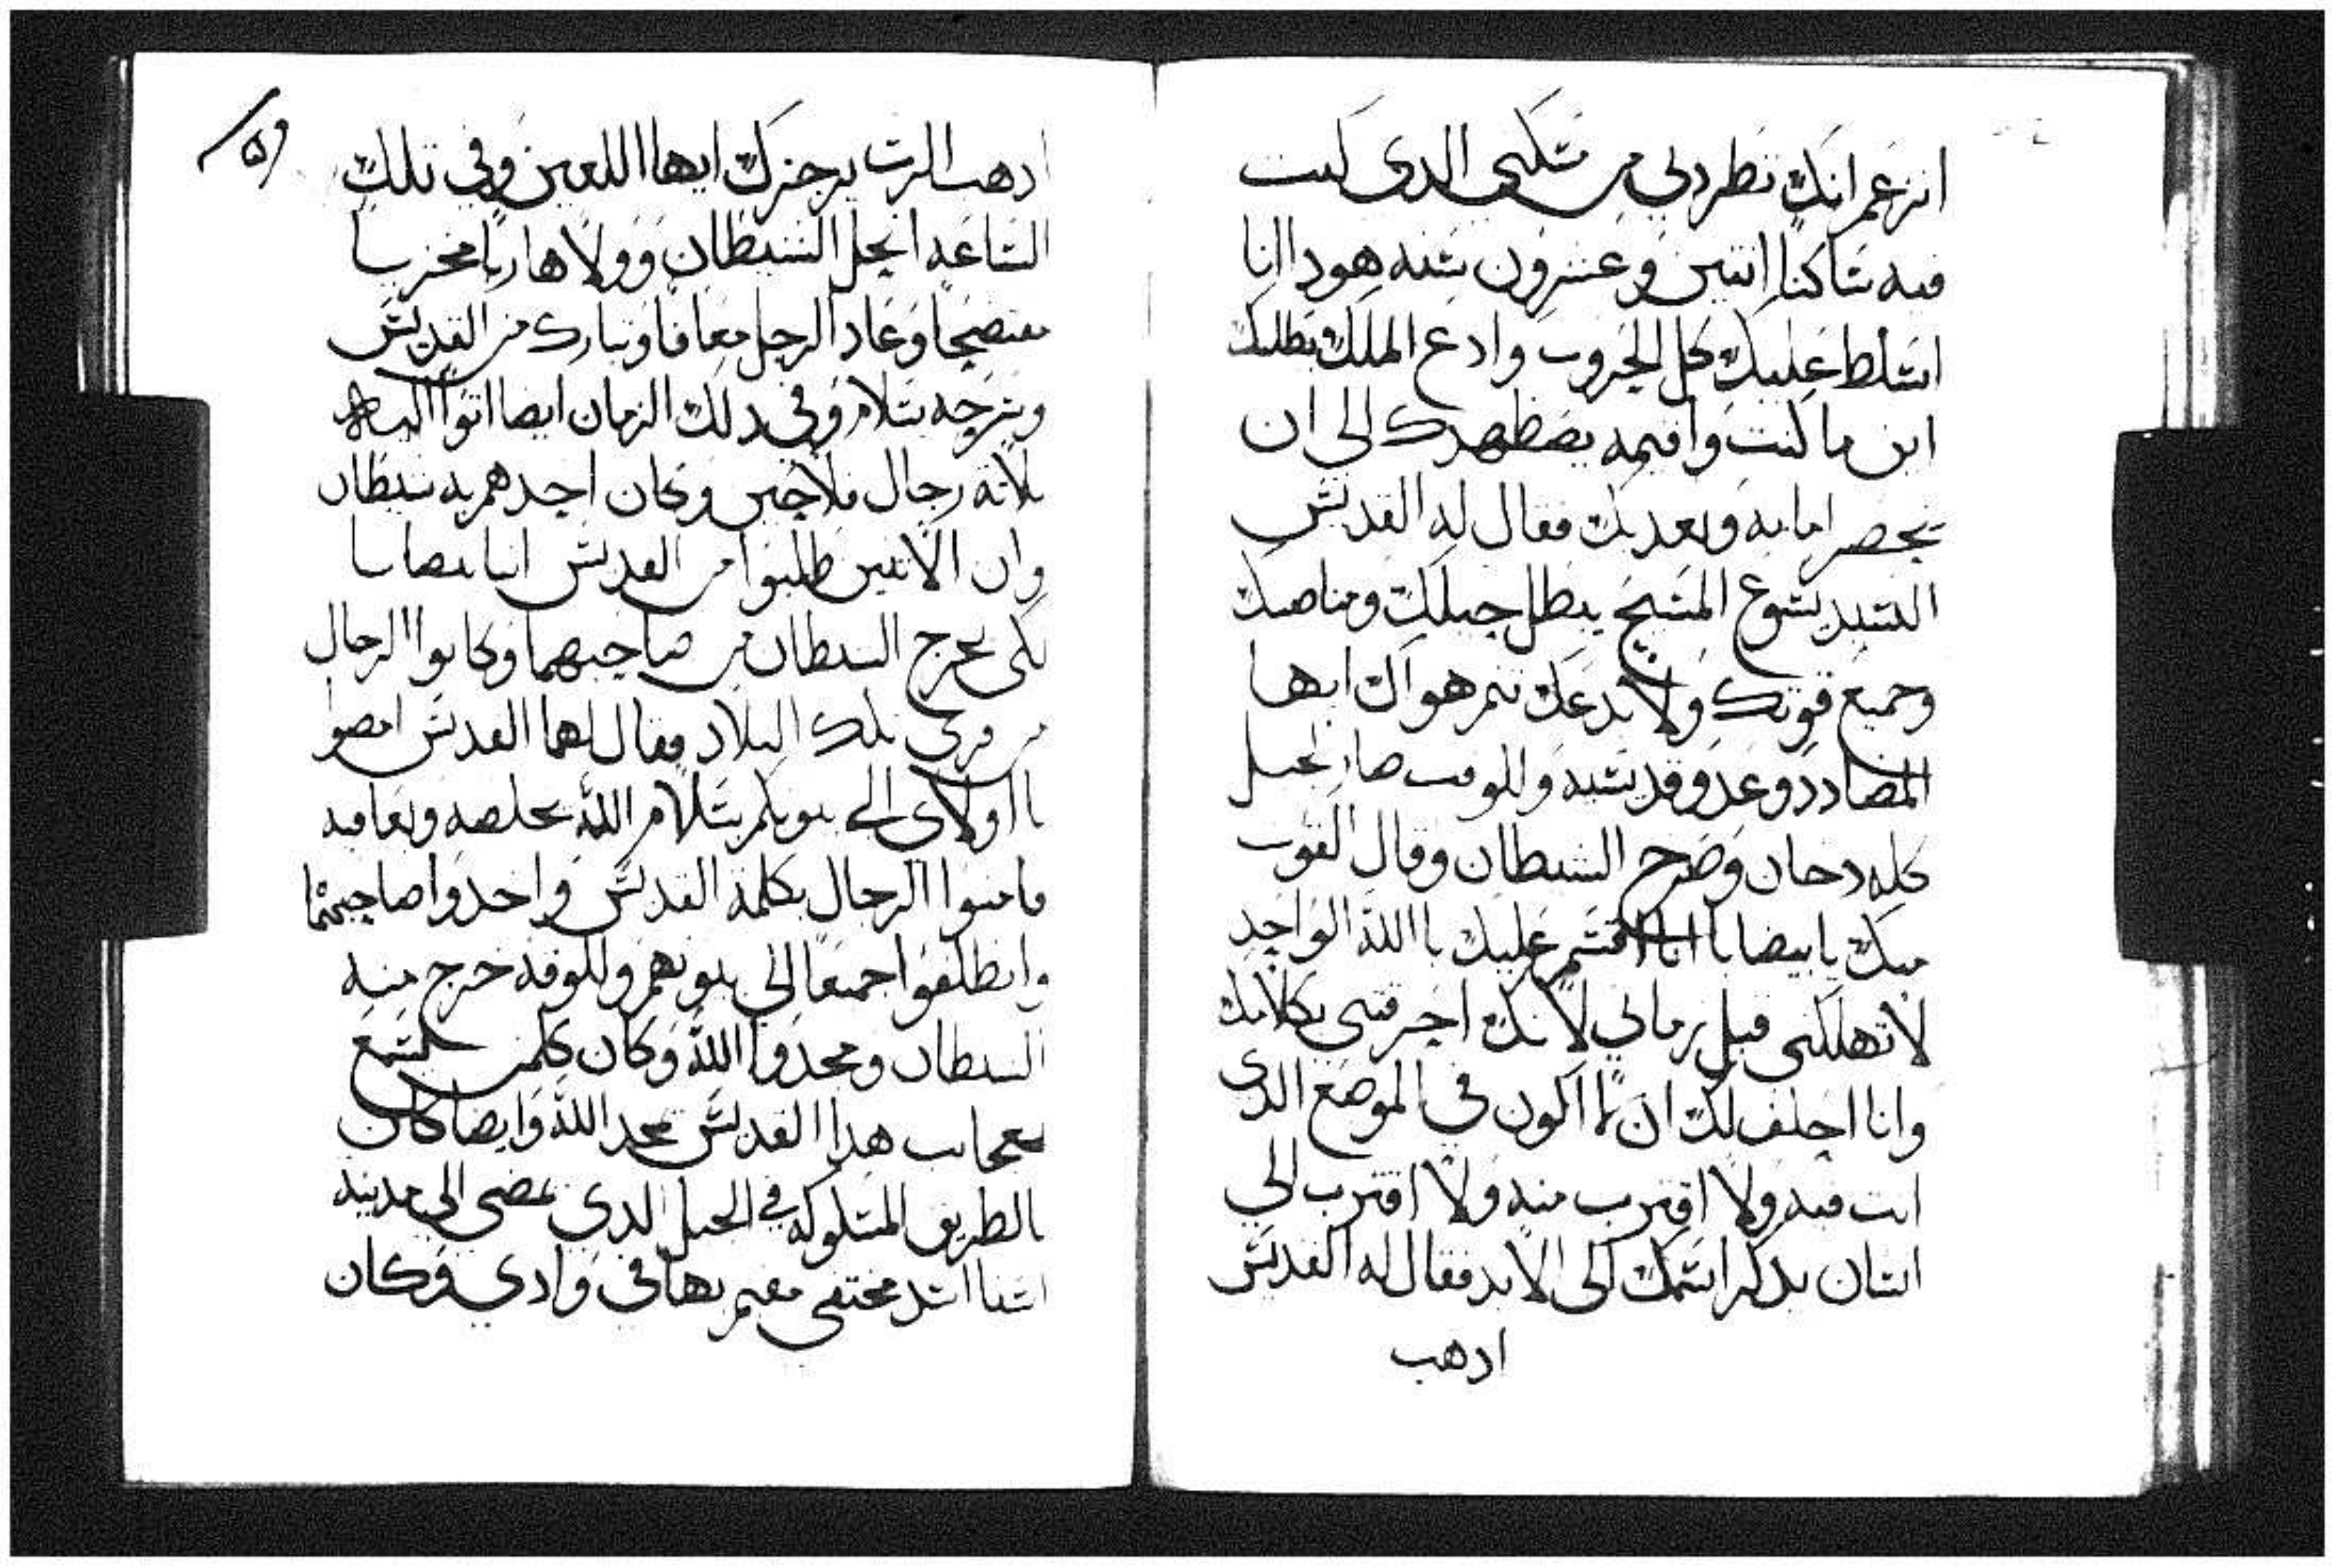 اتزعم انك تطردني من مسكني الدى كنت
فيه ساكنا اتنين وعشرون سنه هودا انا
اسلط عليك كل الحروب وادع الملك يطلبك
اين ما كنت واقيمه يضطهدك الى ان
تحضر امامه ويعدبك فقال له القديس
السيد يسوع المسيح يبطل حيلك ومناصبك
وجميع قوتك ولا يدعك تتم هواك ايها
المضادد وعدو قديسيه وللوقت صار الجبل
كله دخان وصرخ الشيطان وقال القوب
منك يا بيضابا اقسم عليك باالله الواحد
لا تهلكني قبل زماني لانك احرقتني بكلامك
وانا احلف لك ان لا اكون في الموضع الدى
انت فيه ولا اقترب منه ولا اقترب الي
انسان يدكر اسمك الى الابد فقال له القديس
ادهب
ادهب الرب يزجزك ايها اللعين وفي تلك
الساعه انحل الشيطان وولا هاربا مخزيا
مفتضحا وعاد الرجل معافا وتبارك من القديس
وتوجه بسلام وفي دلك الزمان ايضا اتوا اليه
تلاتة رجال فلاحين وكان احدهم به شيطان
وان الاتنين طلبوا من القديس انبا بيضابا
لكى يخرج الشيطان من صاحبهما وكانوا الرجال
من قرى تلك البلاد فقال لهما القديس امضوا
يا اولادى الى بيوتكم بسلام الله يخلصه ويعافيه
فامنوا الرجال بكلمة القديس واخدوا صاحبهما
وانطلقوا جميعا الى بيوتهم وللوقت خرج منه
الشيطان ومجدوا الله وكان كلمن يسمع
بعجايب هدا القديس يمجد الله وايضا كان
بالطريق المسلوكه في الجبل الدى يمضى الى مدينة
اسنا اسد مختفى مقيم بها في وادي وكان